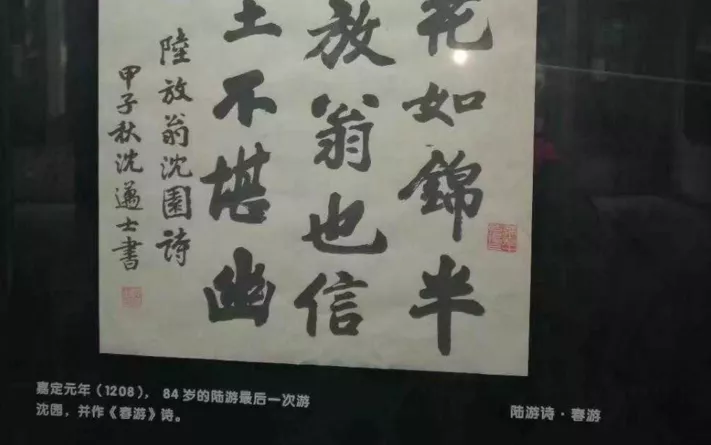 花如錦半
放翁也信
土不堪幽
陸放翁沈園詩
甲子秋沈邁士書
嘉定元年(1208), 84岁的陆游最后一次游
沈园,并作《春游》诗。
陆游诗·春游